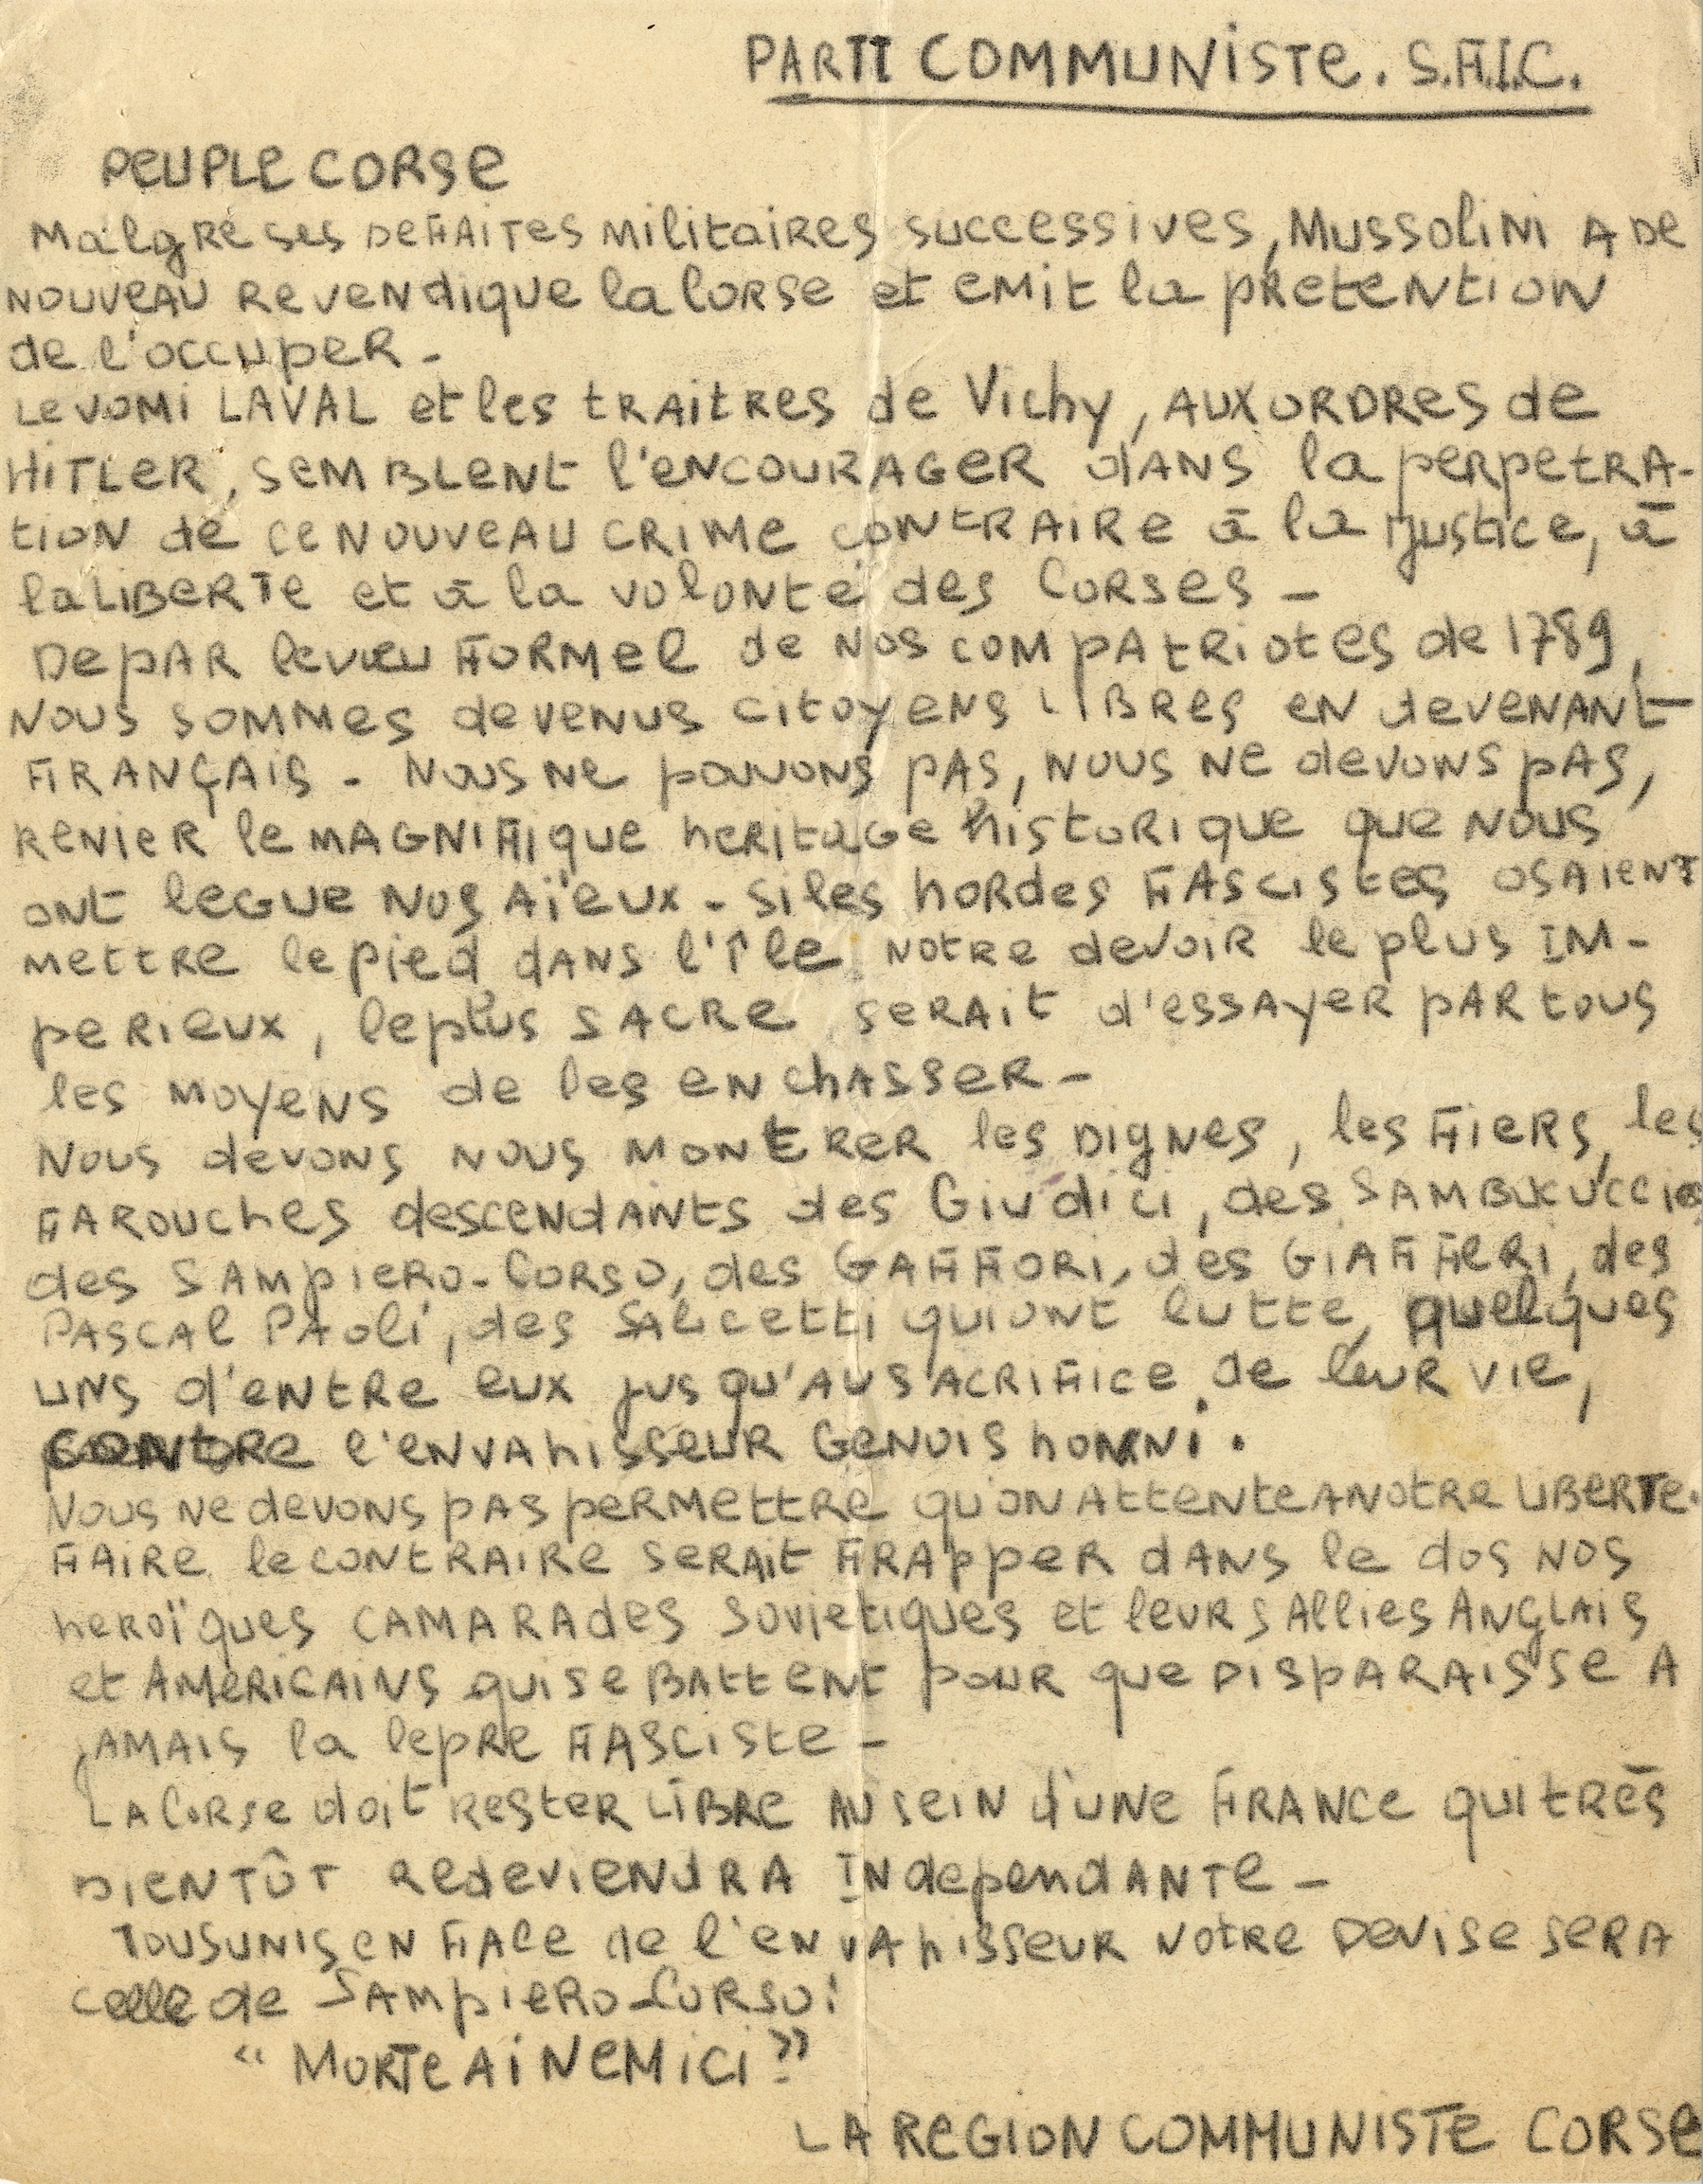 PARTI COMMUNISTE. S.F.I.C.
PEUPLE CORSE
Malgré ses DEFAITES MilitaiRES successives, MussoliNi A DE
NOUVEAU REVENdique la CORSE et EMit la pRETENTION
de l'occupeR -
Le VOMI LAVAL et les tRAitRES de Vichy, AUX ORDRES de
HITLER, SEMBLENT l'ENCOURAGER dANS la peRpetRA-
tion de CE NOUVEAU CRIME CONTRAIRE à la justice, à
la LIBERTE et à la volonté des CORSES -
DE pAR le vœu FORMEL de NOS COMPATRIOTES de 1789,
NOUS SOMMES devENUS citoyENS LIBRES EN devENANt
FRANÇAIS - NOUS NE pouvons pAS, NOUS NE devons pAS,
RENIER le MAGNIFIque heRitaGe histoRique que NOUS
ONt leGUE NOS AÏEUX - Si les hoRdes FAscistes OSAIENT
MettRe le pied dANS l'île NotRe devoiR le plus IM-
peRieux, le plus SACRE seRAit d'essAyeR pAR tous
les MOYENS de les EN chASSER -
NOUS devons NOUS MONtReR les DigNes, les FieRs, les
FAROUches descendANts des Giudici, des SAMBUCUCCIO
des SAMpieRo-CORSO, des GAFFORI, des GIAFFERI, des
PASCAL PAoli, des SAlicetti qui ONt lutté, quelques
uns d'entRe eux jusqu'AU SACRIFICE de leuR vie,
CONtRe l'ENVAhisseuR GENOIS honni.
NOUS NE devons pAS peRMettRe qu'ON AttENte A NotRe LIBERTE.
FAiRe le CONtRAIRE seRAit FRAppeR dANS le dos NOS
heRoïques CAMARAdes Sovietiques et leuRs Allies ANGLAiS
et AMERICAINS qui se BAttENt pour que DispARAisse A
jAMAIS la lepRe FASciste -
LA CORSE doit RestER LIBRE AU seiN d'UNE FRANCE qui tRès
BIENTÔT RedeviENdRA INdepeNdANTE -
TOUS UNIS EN FACE de l'ENVAhisseuR NotRe Devise seRA
celle de SAMpieRo-CORSO:
"MORTE AI NEMICI!"
LA REGION COMMUNISTE CORSE